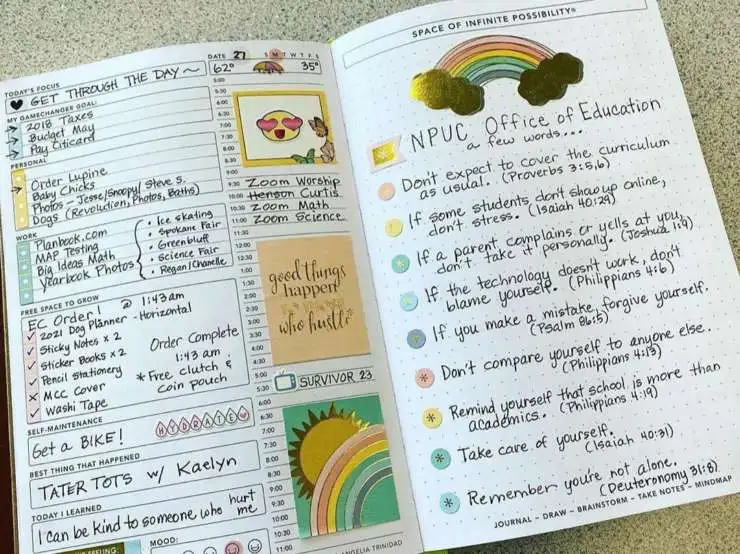 TODAY'S FOCUS
GET THROUGH THE DAY~
MY GAMECHANGER GOAL:
2018 Taxes
Budget May
Pay Citicard
PERSONAL
Order Lupine
Baby Chicks
Photos - Jesse/Snoopy/Steve S.
Dogs (Revolution, Photos, Baths)
WORK
Planbook.com
MAP Testing
Big Ideas Math
Yearbook Photos
• Ice skating
• Spokane Fair
• Greenbluff
• Science Fair
• Regan/Chanelle
FREE SPACE TO GROW
EC Order! @ 1:43am
✓ 2021 Dog Planner - Horizontal
✓ Sticky Notes x 2
✓ Sticker Books x 2
✓ Pencil Stationery
x MCC Cover
✓ Washi Tape
Order Complete
1:43 am
* Free Clutch &
coin pouch
SELF-MAINTENANCE
Get a BIKE!
HYDRATE
BEST THING THAT HAPPENED
TATER TOTS w/ Kaelyn
TODAY I LEARNED
I can be kind to someone who hurt me
FEELING:
MOOD:
DATE 27 S M T W T F S
62° 35°
5:00
5:30
6:00
6:30
7:00
7:30
8:00
9:00
9:30 Zoom Worship
10:00 Henson Curtis
10:30 Zoom Math
11:00 Zoom Science
11:30
12:00
12:30
1:00
1:30
2:00
2:30
3:00
3:30
4:00
4:30
good things
happen
to those
who hustle
5:00
5:30 SURVIVOR 23
6:00
6:30
7:00
7:30
8:00
8:30
9:00
9:30
10:00
10:30
11:00
ANGELIA TRINIDAD
SPACE OF INFINITE POSSIBILITY®
NPUC Office of Education
a few words...
Don't expect to cover the curriculum
as usual. (Proverbs 3:5,6)
If some students don't show up online,
don't stress. (Isaiah 40:29)
If a parent complains or yells at you,
don't take it personally. (Joshua 1:9)
If the technology doesn't work, don't
blame yourself. (Philippians 4:6)
If you make a mistake, forgive yourself.
(Psalm 86:5)
Don't compare yourself to anyone else.
(Philippians 4:13)
Remind yourself that school is more than
academics. (Philippians 4:19)
Take care of yourself.
(Isaiah 40:31)
Remember you're not alone.
(Deuteronomy 31:8)
JOURNAL - DRAW - BRAINSTORM - TAKE NOTES - MINDMAP